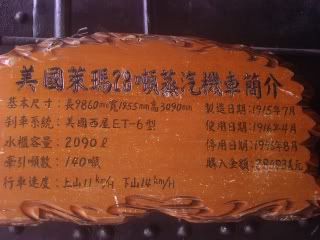 美國萊瑪28噸蒸汽機車簡介
基本尺寸:長9860mm寬1955mm高3090mm
製造日期:1915年7月
剎車系統:美國西屋E.T-6型
使用日期:1916年4月
水櫃容量:2090ℓ
停用日期:1975年8月
牽引噸數:140噸
購入金額:
行車速度:上山11km/H 下山14km/H